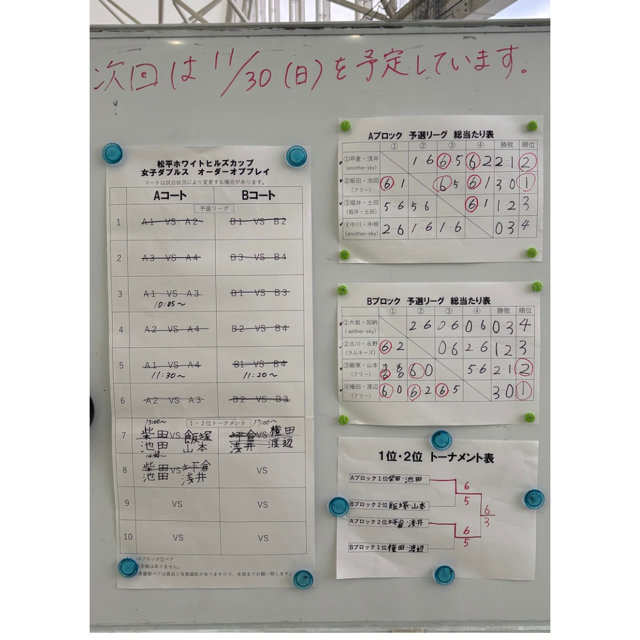 次回は11/30(日)を予定しています。
松平ホワイトヒルズカップ
女子ダブルス オーダーオブプレイ
コートは試合状況により変更する場合があります。
Aコート Bコート
予選リーグ
1 A1 VS A2 B1 VS B2
2 A3 VS A4 B3 VS B4
3 A1 VS A3 B1 VS B3
10:05〜
4 A2 VS A4 B2 VS B4
5 A1 VS A4 B1 VS B4
11:30〜 11:20〜
6 A2 VS A3 B2 VS B3
1-2位トーナメント
13:00〜 13:00〜
7 柴田 池田 VS 飯塚 山本 坪倉 浅井 VS 権田 渡辺
8 柴田 池田 VS 坪倉 浅井 VS
9 VS VS
10 VS VS
Aブロック 予選リーグ 総当たり表
① ② ③ ④ 勝敗 順位
①坪倉・浅井 (another-sky) 1 6 6 5 6 2 2 1 2
②柴田・池田 (フリー) 6 1 6 5 6 1 3 0 1
③堀井・土田 (堀井・土田) 5 6 5 6 6 1 1 2 3
④中川・中根 (another-sky) 2 6 1 6 1 6 0 3 4
Bブロック 予選リーグ 総当たり表
① ② ③ ④ 勝敗 順位
①大岩・加納 (another-sky) 2 6 0 6 0 6 0 3 4
②古川・永野 (ラムキーズ) 6 2 0 6 2 6 1 2 3
③飯塚・山本 (フリー) 6 0 5 6 2 1 2
④権田・渡辺 (フリー) 6 0 6 2 6 5 3 0 1
1位・2位 トーナメント表
Aブロック1位 柴田・池田
6
5
Bブロック2位 飯塚・山本
6
3
Aブロック2位 坪倉・浅井
6
5
Bブロック1位 権田・渡辺